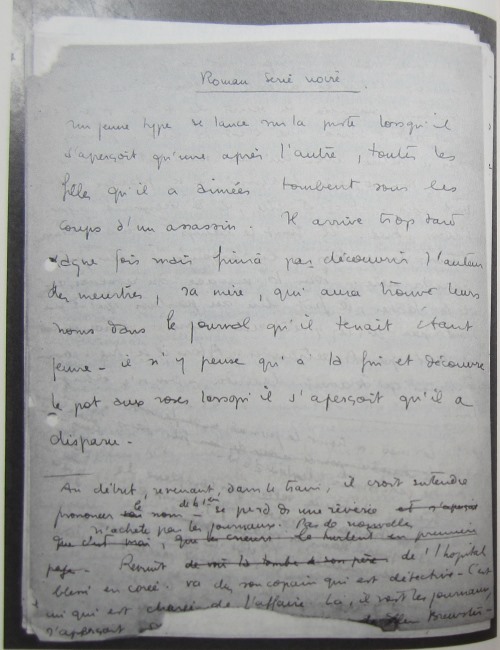 Roman Série noire
Un jeune type se lance sur la piste lorsqu'il
s'aperçoit qu'une après l'autre, toutes les
filles qu'il a aimées tombent sous les
coups d'un assassin. Il arrive trop tard
chaque fois mais finira par découvrir l'auteur
des meurtres, sa mère, qui aura trouvé leurs
noms dans le journal qu'il tenait étant
jeune - il n'y pense qu'à la fin et découvre
le pot aux roses lorsqu'il s'aperçoit qu'il a
disparu -
Au début, revenant dans le train, il croit entendre
prononcer le nom de B se perd ds une rêverie et s'aperçoit
n'achète pas les journaux. Pas de nouvelles
que c'est vrai, que les crieurs le hurlent en première
page - Revient de voir la tombe de son père de l'hôpital
blessé en Corée. va chez son copain qui est détective - C'est
lui qui est chargé de l'affaire. Là, il voit les journaux
s'aperçoit Brewster -